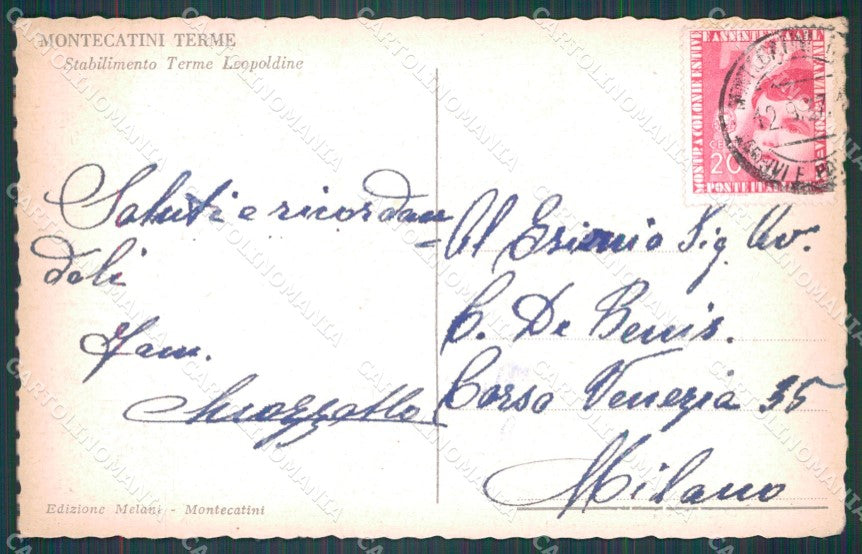 MONTECATINI TERME
Stabilimento Terme Leopoldine
Saluti e ricordan
doli
Fam.
Al Esimio Sig Av.
C. De Benis.
Corso Venezia 35
Milano
Edizione Melani - Montecatini
MOSTRA COLONIE ESTIVE E ASSISTENZA ALL'INFANZIA
POSTE ITALIANE
CENT 20
CARTOLINOMANIA